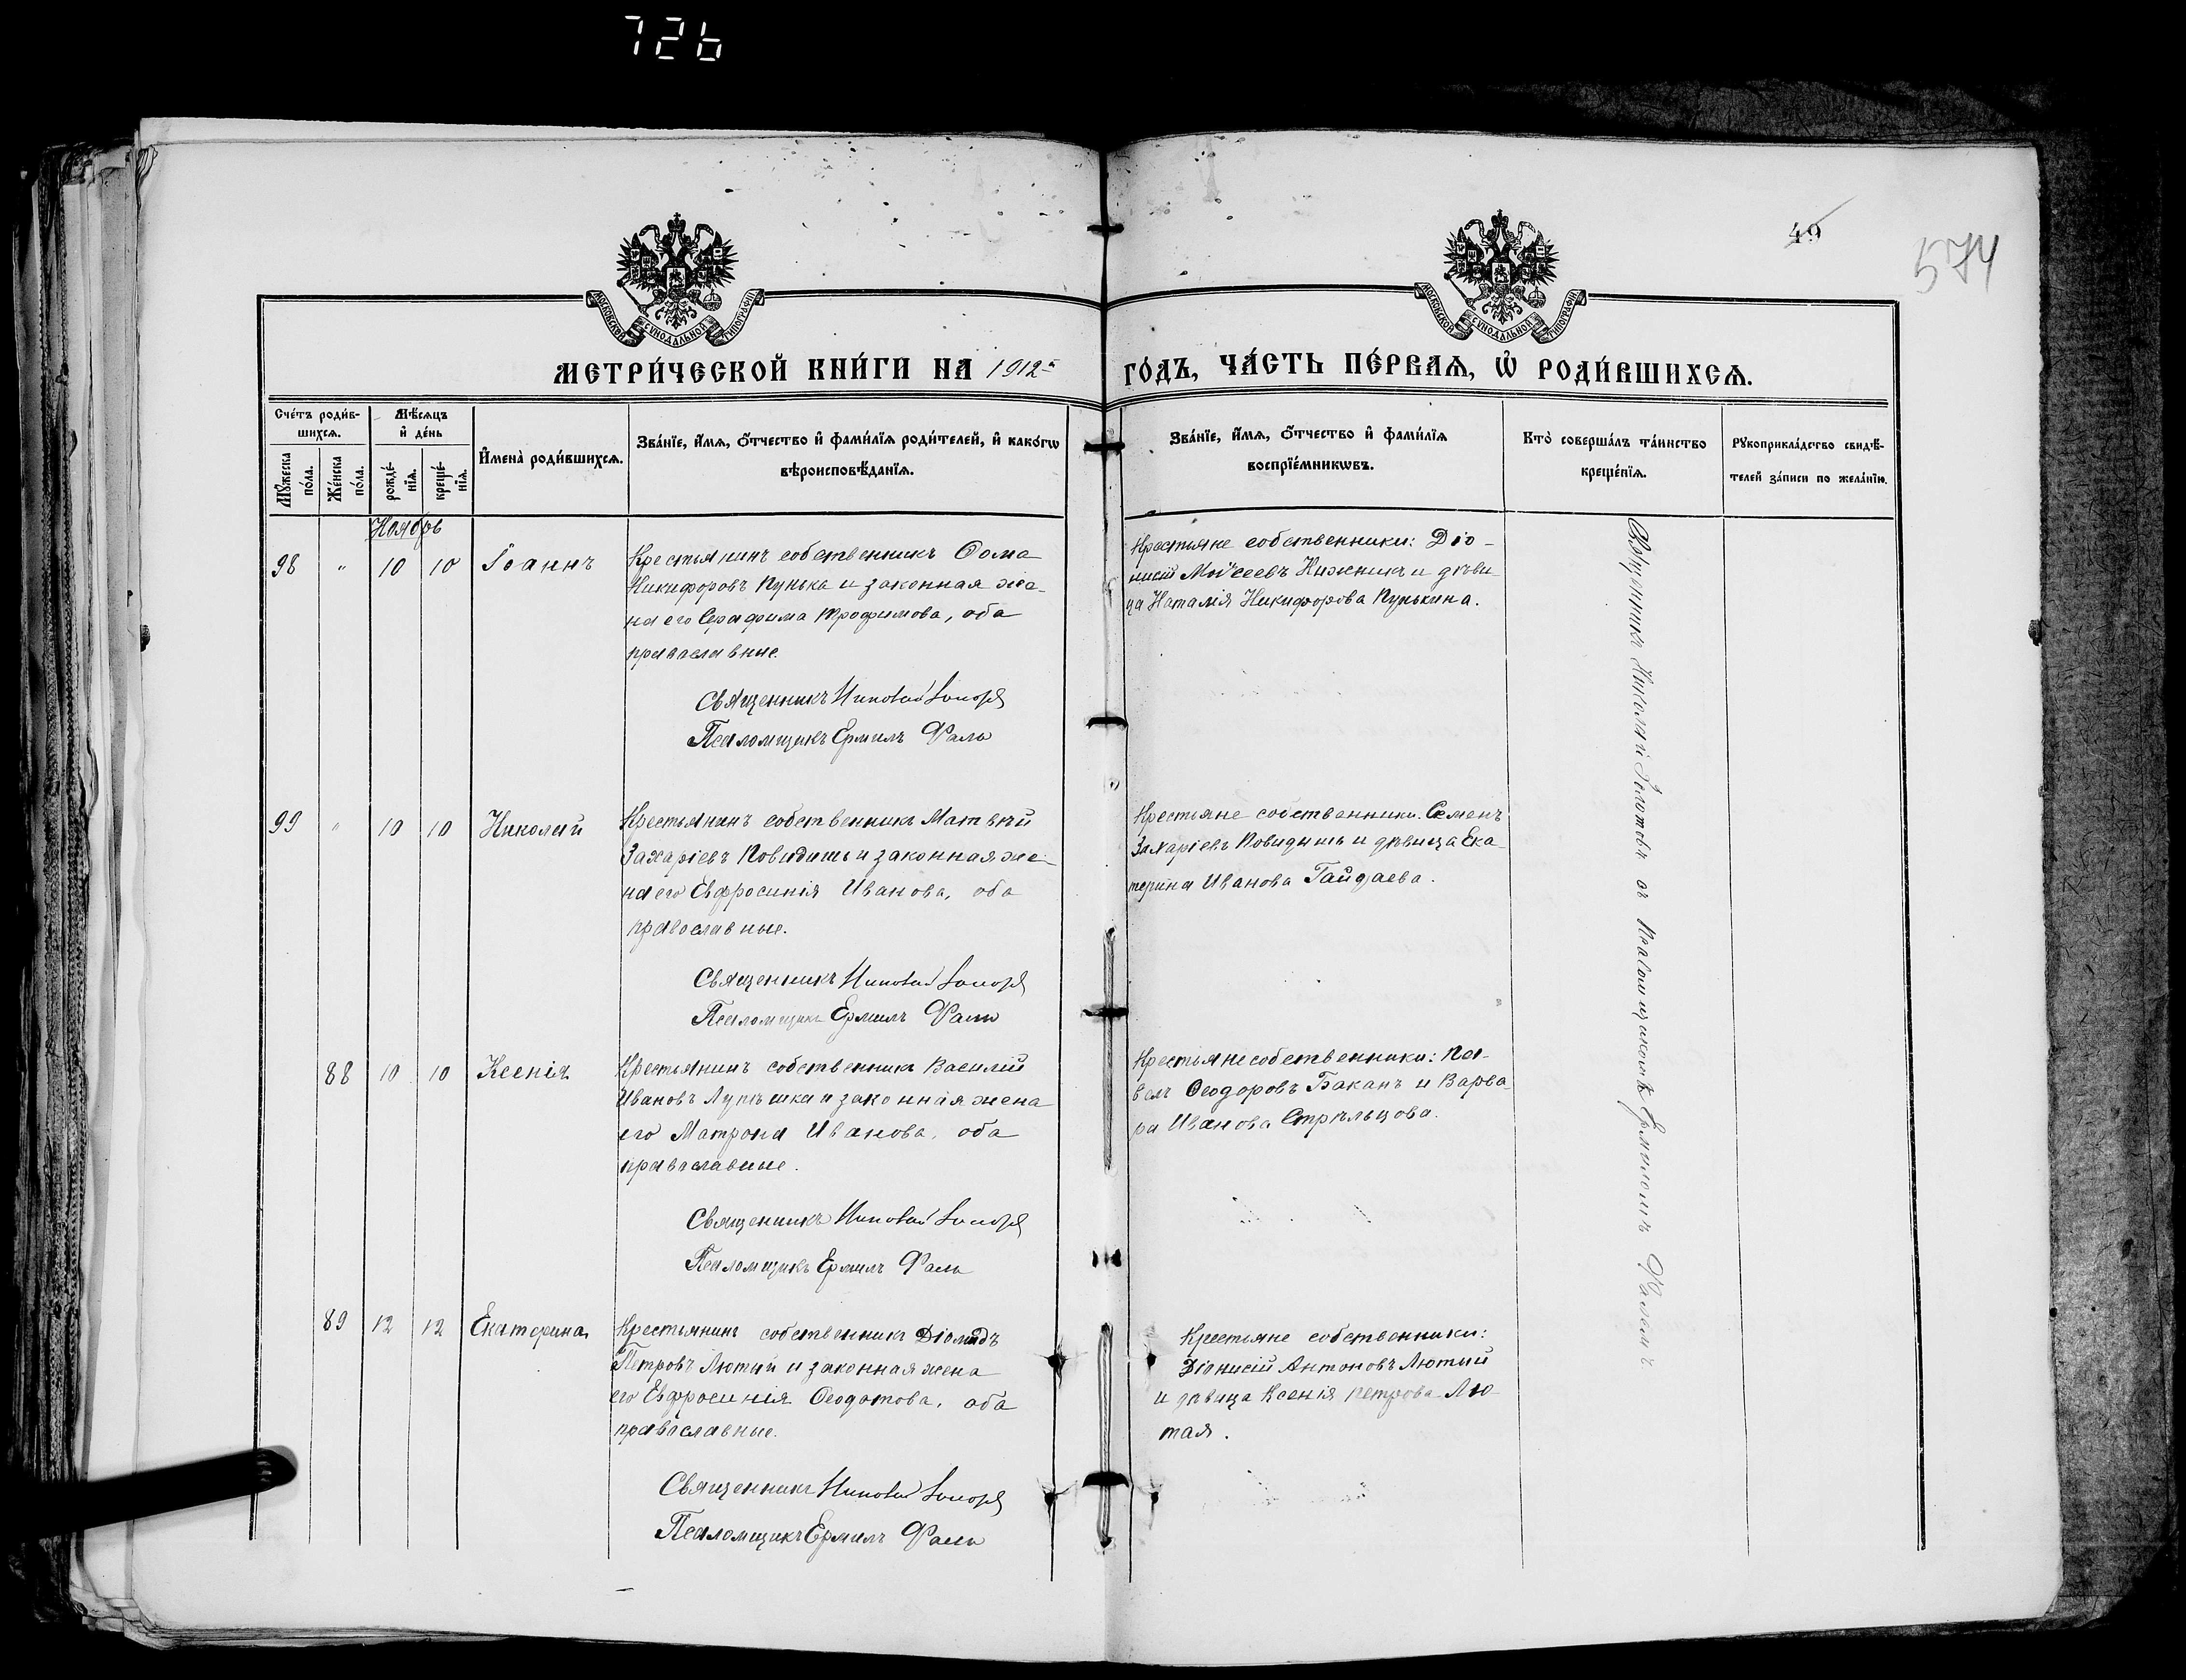 726
49
574
МОСКОВСКОЙ СѴНОДАЛЬНОЙ ТИПОГРАФІИ
МОСКОВСКОЙ СѴНОДАЛЬНОЙ ТИПОГРАФІИ
МЕТРИ́ЧЕСКОЙ КНИ́ГИ НА 1912й ГО́ДЪ, ЧА́СТЬ ПЕ́РВАѦ, Ѡ҆ РОДИ́ВШИХСѦ.
Сче́тъ роди́в-
шихсѧ.
Мꙋ́жеска по́ла.
Же́нска по́ла.
Мѣ́сѧцъ
и҆ де́нь
рожде́-
нїѧ.
креще́-
нїѧ.
И҆мена̀ роди́вшихсѧ.
Зва́нїе, и҆́мѧ, ѻ҆́тчество и҆ фами́лїѧ роди́телей, и҆ како́гѡ
вѣроисповѣ́данїѧ.
Зва́нїе, и҆́мѧ, ѻ҆́тчество и҆ фами́лїѧ
воспрїе́мникѡвъ.
Кто̀ соверша́лъ та́инство
креще́нїѧ.
Рꙋкоприкла́дство свидѣ́-
телей за́писи по жела́нїю.
Ноябрь
98 " 10 10 Іоаннъ
Крестьянинъ собственникъ Ѳома
Никифоровъ Пунька и законная же-
на его Серафима Трофимова, оба
православные.
Священникъ Николай
Псаломщикъ Ермилъ Фаль
Крестьяне собственники: Діо-
нисій Моѵсеевъ Нижникъ и дѣви-
ца Наталія Никифорова Пунькина.
99 " 10 10 Николай
Крестьянинъ собственникъ Матвѣй
Захаріевъ Повидышъ и законная же-
на его Евфросинія Иванова, оба
православные.
Священникъ Николай
Псаломщикъ Ермилъ Фаль
Крестьяне собственники. Семенъ
Захаріевъ Повидышъ и дѣвица Ека-
терина Иванова Гайдаева.
88 10 10 Ксенія
Крестьянинъ собственникъ Василій
Ивановъ Лупѣшка и законная жена
его Матрона Иванова, оба
православные.
Священникъ Николай
Псаломщикъ Ермилъ Фаль
Крестьяне собственники: Па-
велъ Ѳеодоровъ Баканъ и Варва-
ра Иванова Стрѣльцова.
89 12 12 Екатерина
Крестьянинъ собственникъ Діомидъ
Петровъ Лютый и законная жена
его Евфросинія Ѳеодотова, оба
православные.
Священникъ Николай
Псаломщикъ Ермилъ Фаль
Крестьяне собственники:
Діонисій Антоновъ Лютый
и дѣвица Ксенія Петрова Лю-
тая.
Священникъ Николай съ Псаломщикомъ Ермиломъ Фалемъ